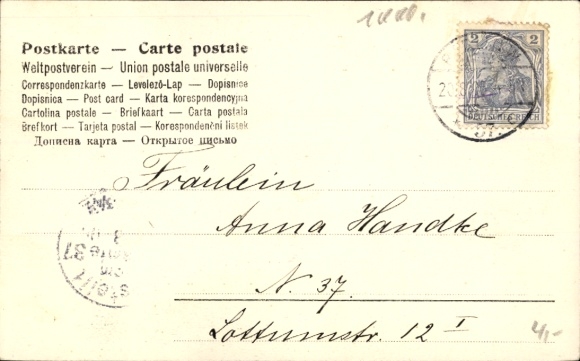 Postkarte — Carte postale
Weltpostverein — Union postale universelle
Correspondenzkarte — Levelező-Lap — Dopisnice
Dopisnica — Post card — Karta korespondencyjna
Cartolina postale — Briefkaart — Carta postala
Brefkort — Tarjeta postal — Korespondenční lístek
Дописна карта — Открытое письмо
2 2
DEUTSCHES REICH
37.
Fräulein
Anna Handke
N. 37.
Lottumstr. 12 I
37
4,-